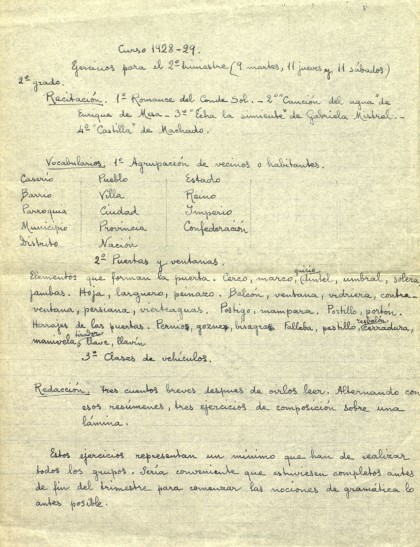 Curso 1928-29.
Ejercicios para el 2º trimestre (9 martes, 11 jueves y 11 sábados)
2º grado.
Recitación. 1ª Romance del Conde Sol. - 2ª "Canción del agua" de
Enrique de Mesa. - 3ª "Echa la simiente" de Gabriela Mistral. -
4ª "Castilla" de Machado.
Vocabularios. 1º Agrupación de vecinos o habitantes.
Caserío Pueblo Estado
Barrio Villa Reino
Parroquia Ciudad Imperio
Municipio Provincia Confederación
Distrito Nación
2º Puertas y ventanas.
quicio
Elementos que forman la puerta. Cerco, marco, dintel, umbral, solera
jambas. Hoja, larguero, peinazo. Balcón, ventana, vidriera, contra-
ventana, persiana, vierteaguas. Postigo, mampara. Portillo, portón.
resbalón
Herrajes de las puertas. Pernios, goznes, bisagras. Falleba, pestillo, cerradura,
tirador
manivela, llave, llavín
3º Clases de vehículos.
Redacción. Tres cuentos breves después de oirlos leer. Alternando con
esos resúmenes, tres ejercicios de composición sobre una
lámina.
Estos ejercicios representan un mínimo que han de realizar
todos los grupos. Sería conveniente que estuviesen completos antes
de fin del trimestre para comenzar las nociones de gramática lo
antes posible.